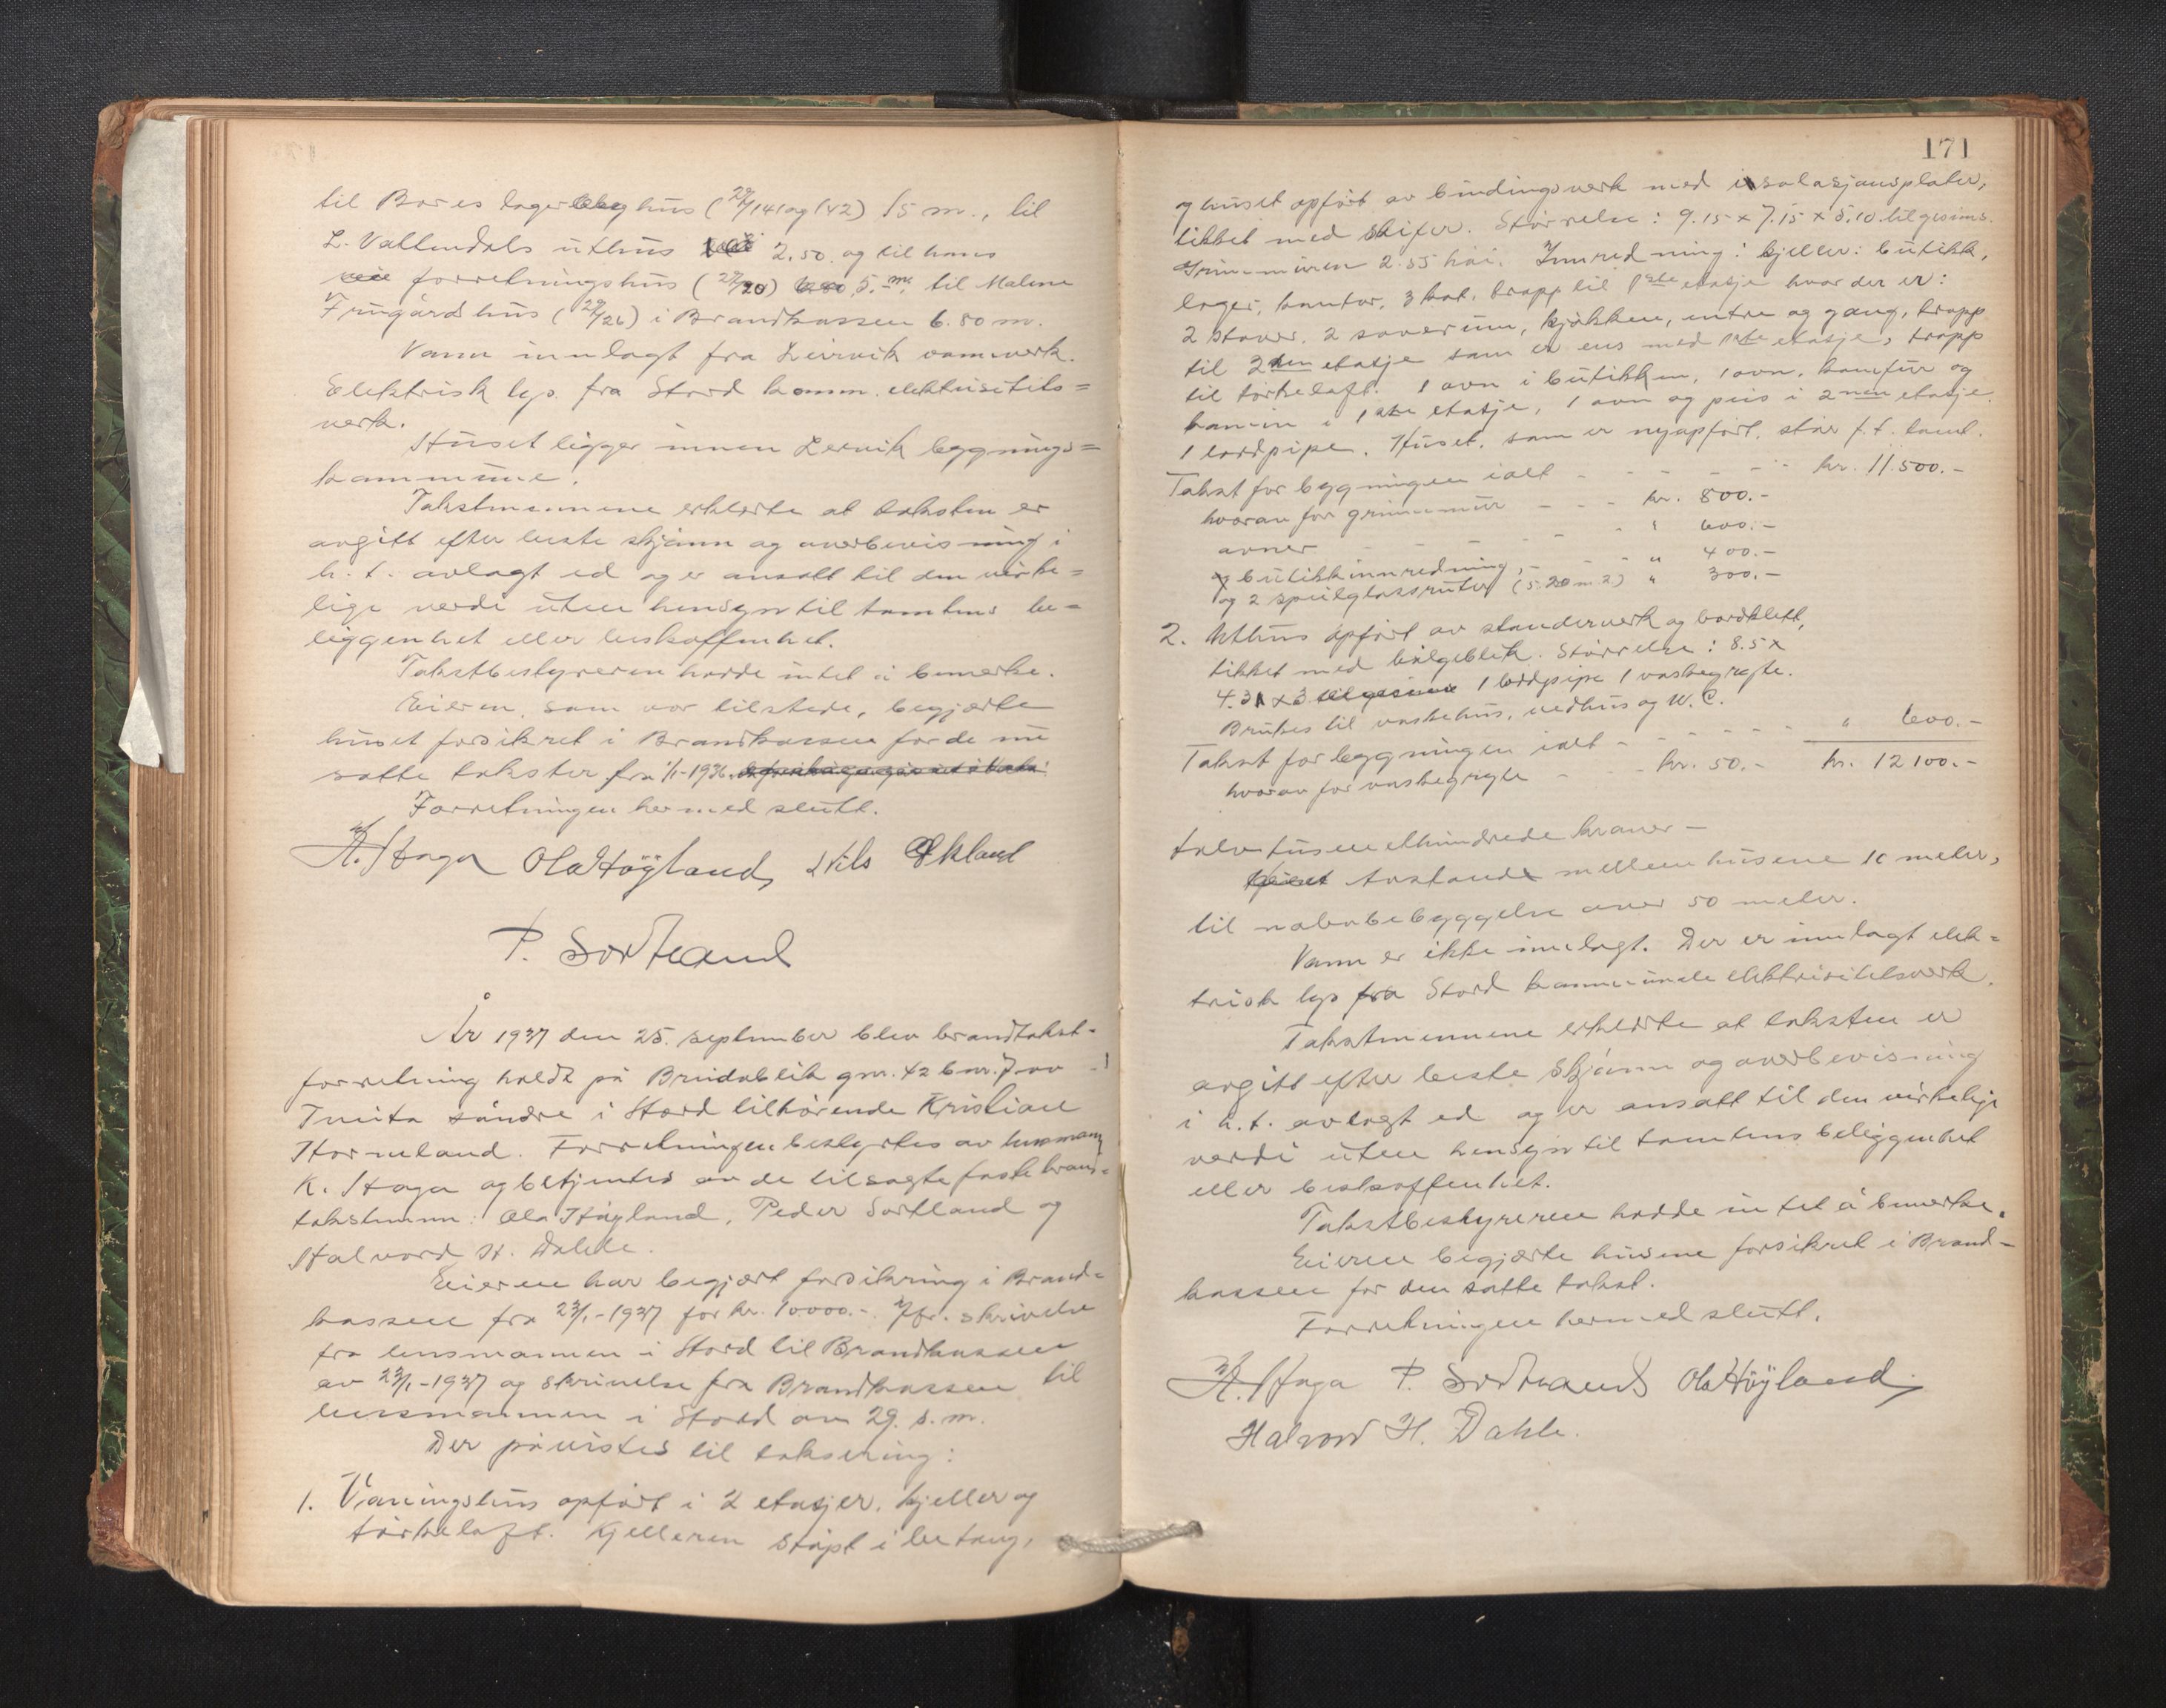 til Bores lager hus (27/141 og 142) 15 m., til
L. Vallendals uthus 2.50. og til hans
forretningshus (27/20) 5. m. til Malene
Frugårds hus (27/26) i Brandkassen 6.80 m.
Vann innlagt fra Leirvik vannverk.
Elektrisk lys fra Stord komm. elektrisitets=
verk.
Huset ligger innen Lervik bygnings=
kommune.
Takstmennene erklærte at taksten er
avgitt efter beste skjønn og overbevisning i
h. t. avlagt ed og er ansatt til den virke=
lige verdi uten hensyn til tomtens be=
liggenhet eller beskaffenhet.
Takstbestyreren hadde intet å bemerke.
Eieren, som var tilstede, begjærte
huset forsikret i Brandkassen for de nu
satte takster fra 1/1-1936.
Forretningen hermed slutt.
K. Haga Ola Høyland, Nils Økland
P. Sortland
År 1937 den 25. september blev brandtakst-
forretning holdt på Brudablik gnr. 42 bnr. 7 av
Tveita søndre i Stord tilhørende Kristian
Horneland. Forretningen bestyrtes av lensmann
K. Haga og betjentes av de tilsagte faste brand=
takstmenn: Ola Høyland, Peder Sortland og
Halvord H. Dahle.
Eieren har begjært forsikring i Brand=
kassen fra 23/1-1937 for kr. 10000.-. Jfr. skrivelse
fra lensmannen i Stord til Brandkassen
av 23/1-1937 og skrivelse fra Brandkassen til
lensmannen i Stord av 29. s. m.
Der påvistes til taksering:
1. Våningshus opført i 2 etasjer, kjeller og
tørkeloft. Kjelleren støpt i betong,
171
og huset opført av bindingsverk med isolasjonsplater,
tekket med skifer. Størrelse: 9.15 x 7.15 x 5.10 til gesims.
Grunnmuren 2.55 høi. Innredning: kjeller: butikk,
lager, kontor, 3 kot, trapp til 1ste etasje hvor der er:
2 stover, 2 soverum, kjøkken, entre og gang, trapp
til 2den etasje som er ens med 1ste etasje, trapp
til tørkeloft. 1 ovn i butikken, 1 ovn, komfur og
kamin i 1ste etasje, 1 ovn og peis i 2nen etasje.
1 lordpipe. Huset, som er nyopført, står f. t. tomt.
Takst for bygningen ialt - - - - - kr. 11.500.-
hvorav for grunnmur - - - kr. 800.-
ovner - - - - - " 600.-
butikkinnredning, - - - " 400.-
og 2 speilglassruter (5.20 m2) " 300.-
2. Uthus opført av standerverk og bordklett,
tekket med bølgeblik. Størrelse: 8.5 x
4.3 x 3 til gesims 1 lordpipe 1 vaskegryte.
Brukes til vaskehus, vedhus og W.C.
Takst for bygningen ialt - - - - - " 600.-
hvorav for vaskegryte - - - kr. 50.- kr. 12100.-
tolvtusenetthundrede kroner -
Avstande mellem husene 10 meter,
til nabobebyggelse over 50 meter.
Vann er ikke innlagt. Der er innlagt elek=
trisk lys fra Stord kommunale elektrisitetsverk.
Takstmennene erklærte at taksten er
avgitt efter beste skjønn og overbevisning
i h. t. avlagt ed og er ansatt til den virkelige
verdi uten hensyn til tomtens beliggenhet
eller beskaffenhet.
Takstbestyreren hadde intet å bemerke.
Eieren begjærte husene forsikret i Brand-
kassen for den satte takst.
Forretningen hermed slutt.
K. Haga P. Sortland Ola Høyland,
Halvord H. Dahle.